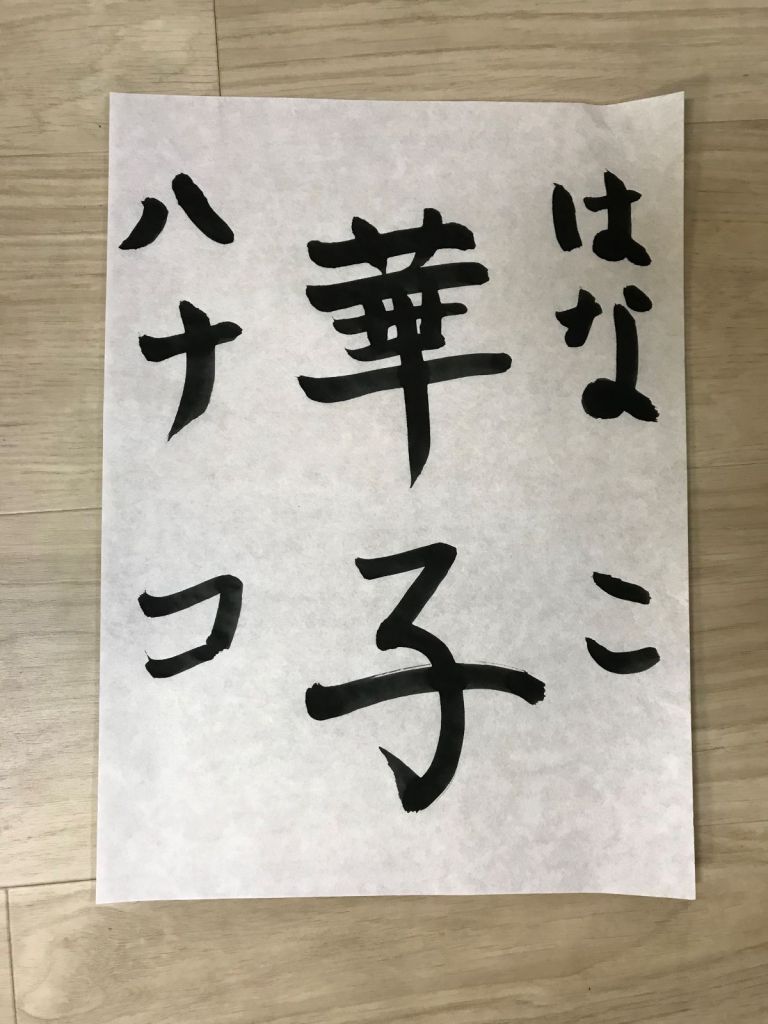 はなこ
華子
ハナコ